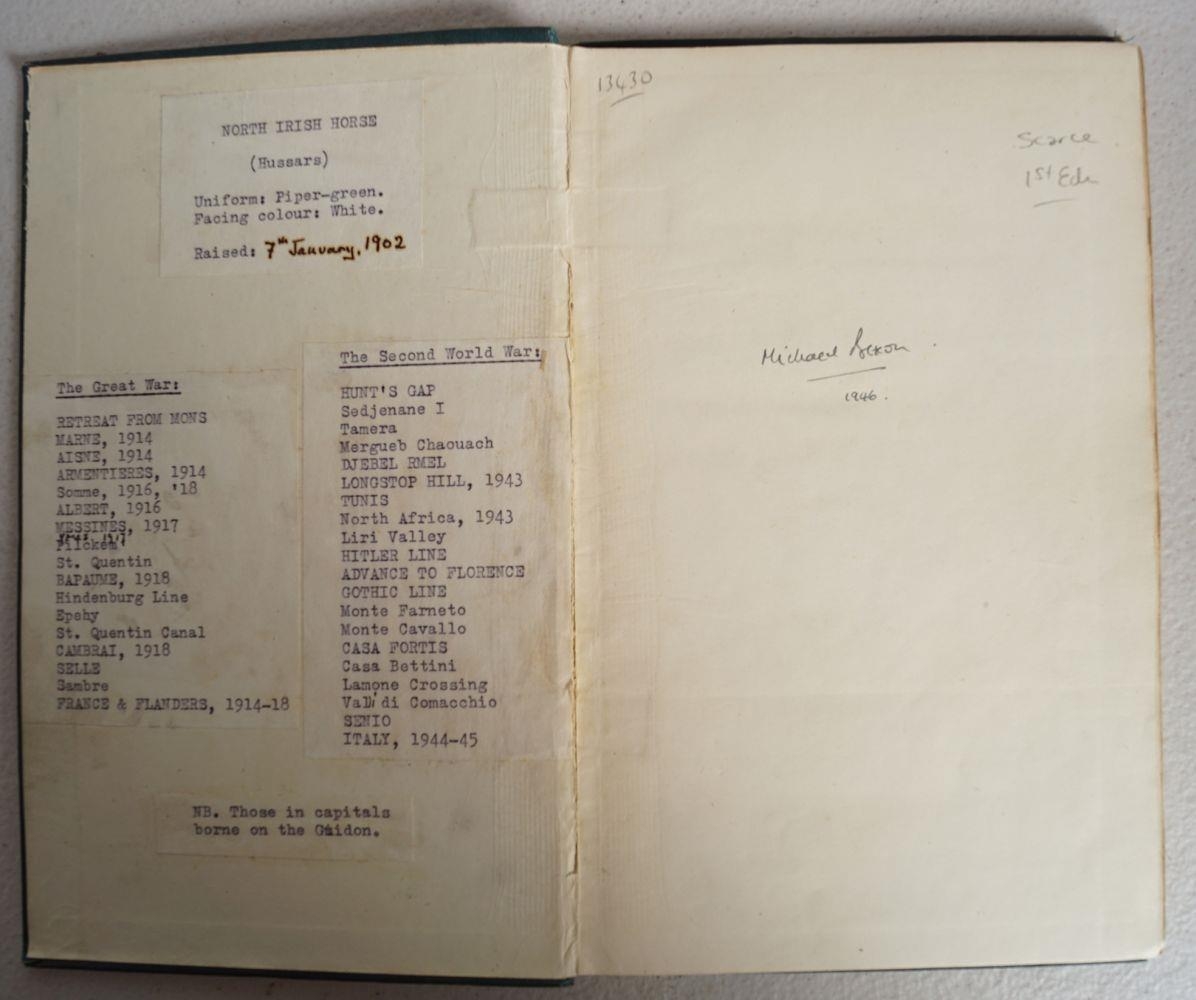 NORTH IRISH HORSE
(Hussars)
Uniform: Piper-green.
Facing colour: White.
Raised: 7th January, 1902
The Great War:
RETREAT FROM MONS
MARNE, 1914
AISNE, 1914
ARMENTIERES, 1914
Somme, 1916, '18
ALBERT, 1916
MESSINES, 1917
Pilckem
St. Quentin
BAPAUME, 1918
Hindenburg Line
Epehy
St. Quentin Canal
CAMBRAI, 1918
SELLE
Sambre
FRANCE & FLANDERS, 1914-18
The Second World War:
HUNT'S GAP
Sedjenane I
Tamera
Mergueb Chaouach
DJEBEL RMEL
LONGSTOP HILL, 1943
TUNIS
North Africa, 1943
Liri Valley
HITLER LINE
ADVANCE TO FLORENCE
GOTHIC LINE
Monte Farneto
Monte Cavallo
CASA FORTIS
Casa Bettini
Lamone Crossing
Valli di Comacchio
SENIO
ITALY, 1944-45
NB. Those in capitals
borne on the Guidon.
13430
Scarce
1st Edn
Michael
1946.